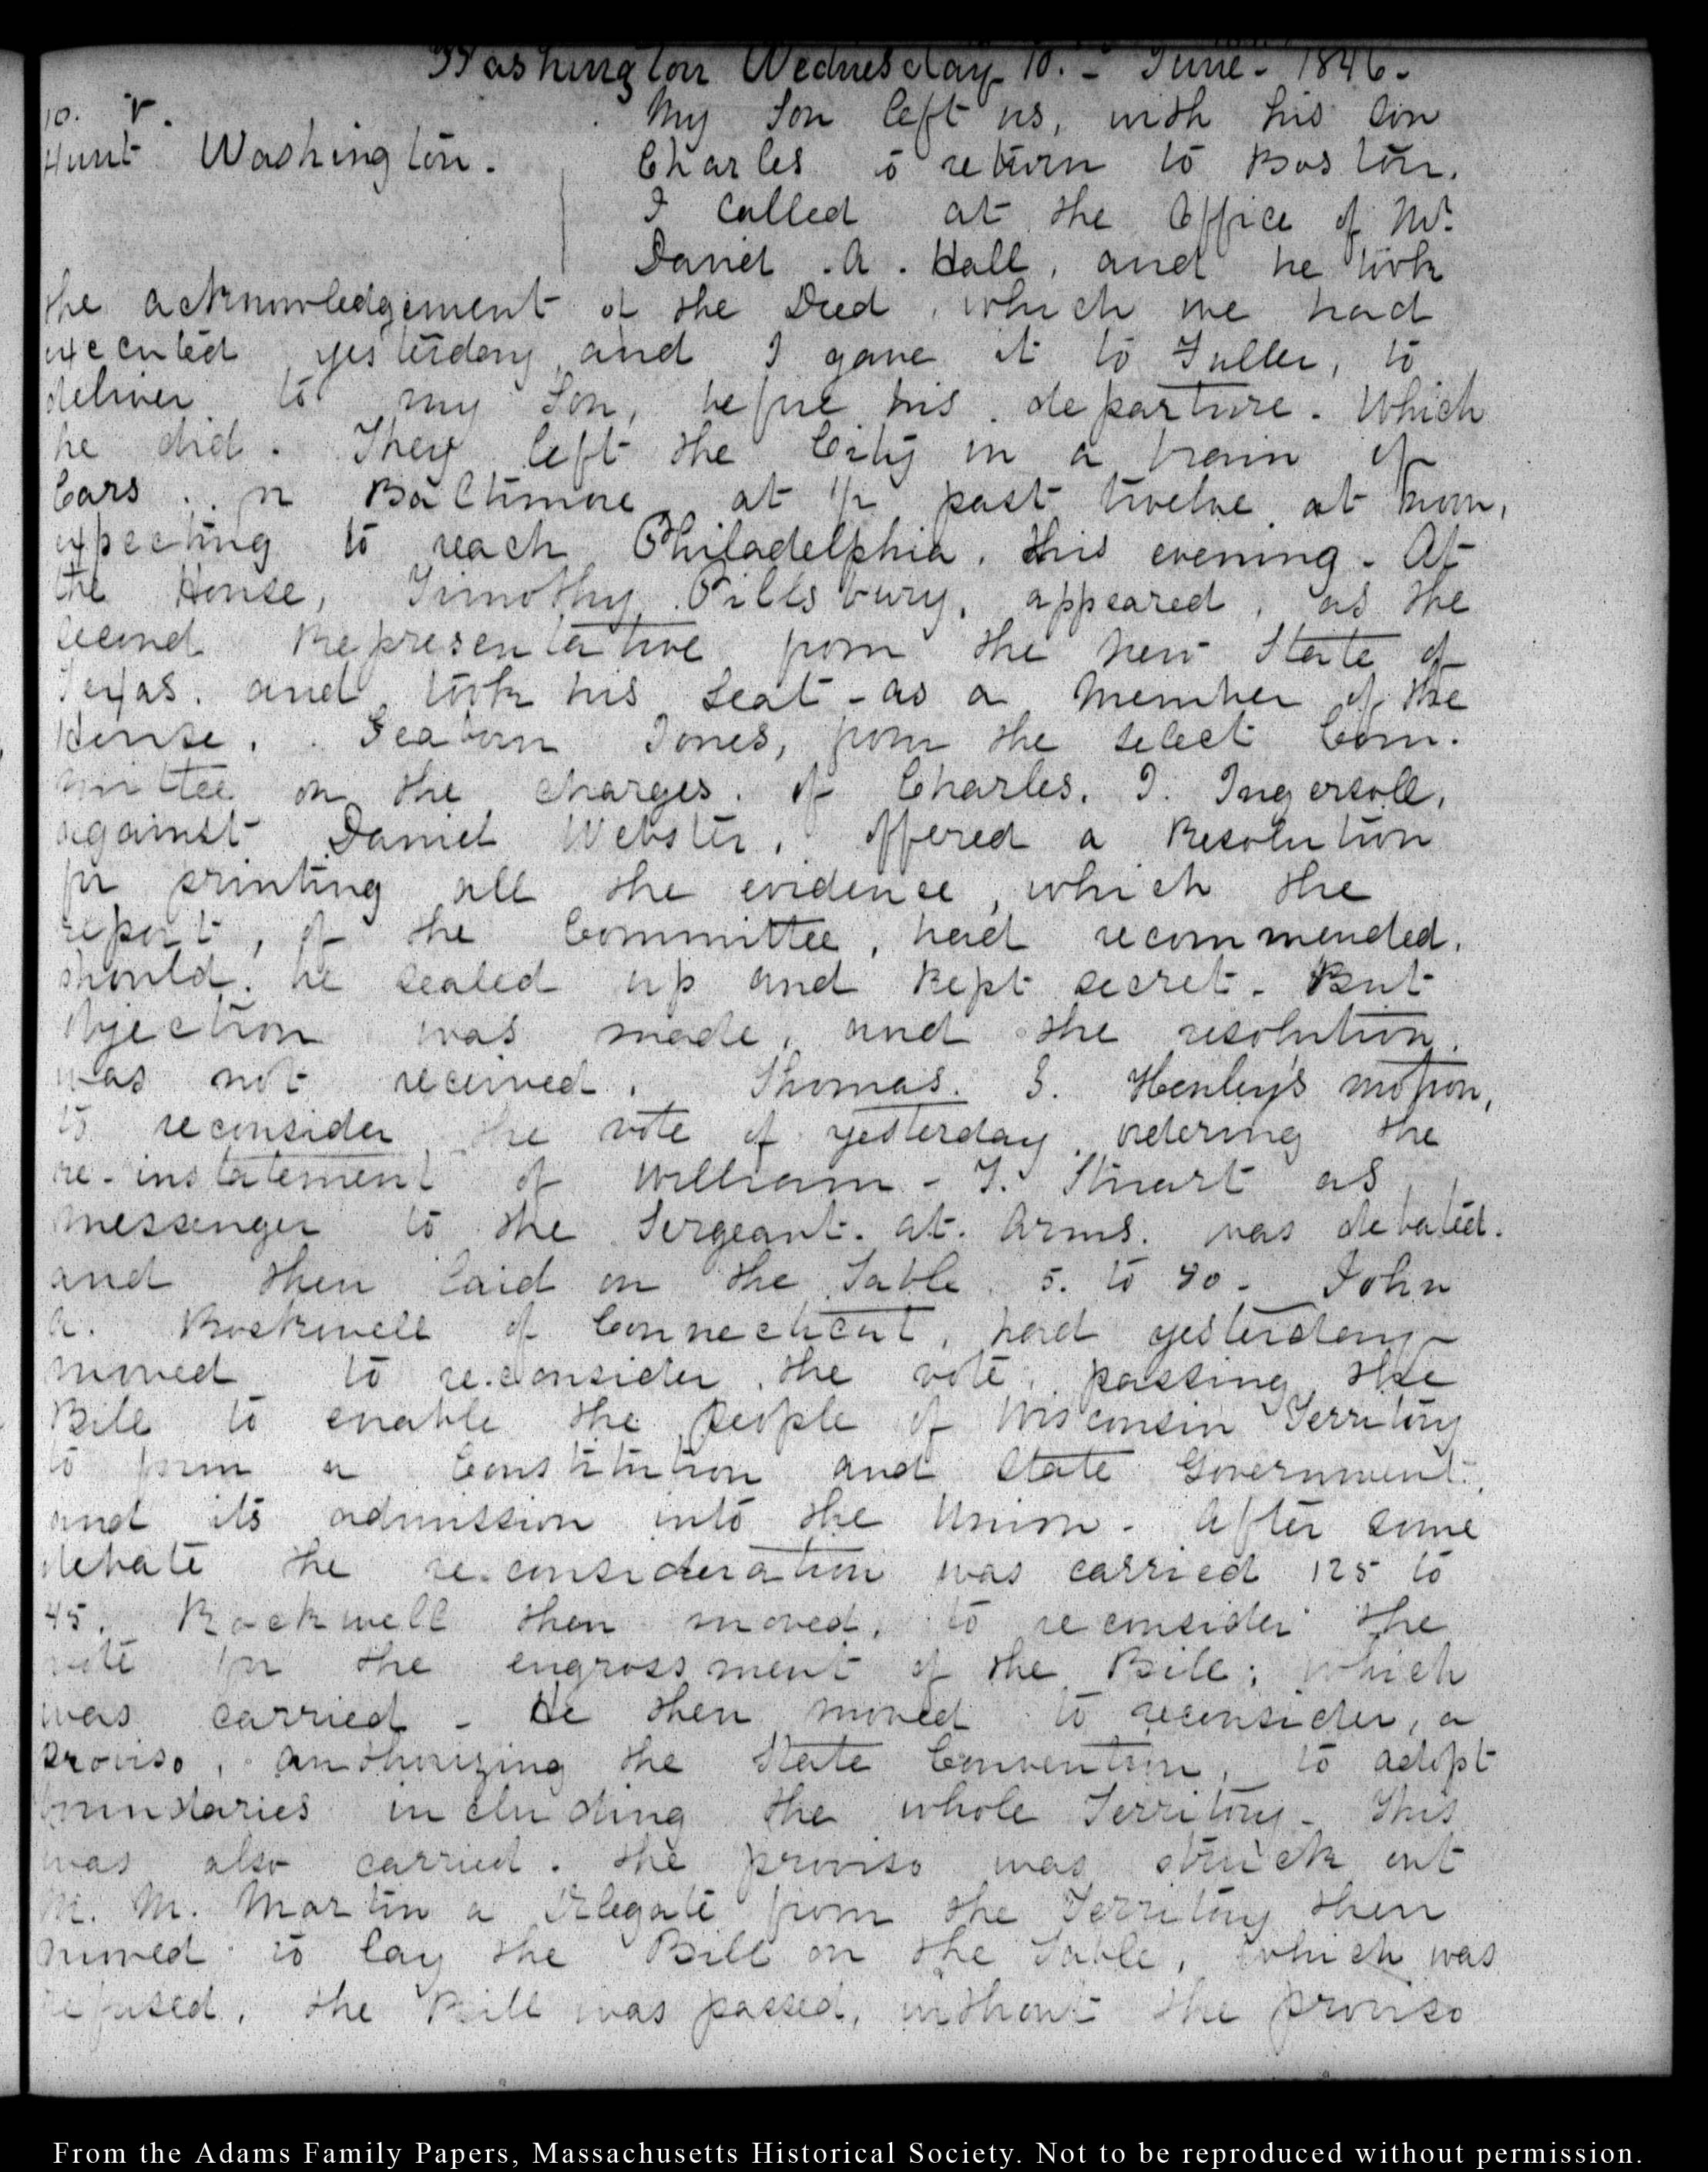 Washington Wednesday 10. - June - 1846.
10. V.
Hunt Washington.
My Son left us, with his Son
Charles to return to Boston.
I called at the Office of Mr.
Daniel . A . Hall, and he took
the acknowledgement of the Deed, which we had
executed yesterday and I gave it to Fuller, to
deliver to my Son, before his departure. Which
he did. They left the City in a train of
Cars . for Baltimore, at 1/2 past twelve at noon,
expecting to reach Philadelphia, this evening - At
the House, Timothy Pillsbury, appeared, as the
second Representative from the new State of
Texas. and took his seat - as a Member of the
House. . Seaborn Jones, from the select Com-
mittee on the charges. of Charles. J. Ingersoll,
against Daniel Webster, offered a Resolution
for printing all the evidence, which the
report, of the Committee, had recommended,
should. be sealed up and kept secret - But
objection was made, and the resolution.
was not received. Thomas. J. Henley's motion,
to reconsider the vote of yesterday ordering the
re-instatement of William - J. Stuart as
messenger to the Sergeant. at. Arms. was debated.
and then laid on the Table 5. to 40 - John
A. Rockwell of Connecticut, had yesterday
moved to re.consider the vote, passing the
Bill to enable the People of Wisconsin Territory
to form a Constitution and State Government,
and its admission into the Union - After some
debate the re.consideration was carried 125 to
45. Rockwell then moved, to reconsider the
vote for the engrossment of the Bill; which
was carried - He then moved to reconsider, a
proviso, authorizing the State Convention, to adopt
boundaries including the whole Territory - This
was also carried. The proviso was struck out
M. M. Martin a Delegate from the Territory then
moved to lay the Bill on the Table, which was
refused. the Bill was passed, without the proviso
From the Adams Family Papers, Massachusetts Historical Society. Not to be reproduced without permission.